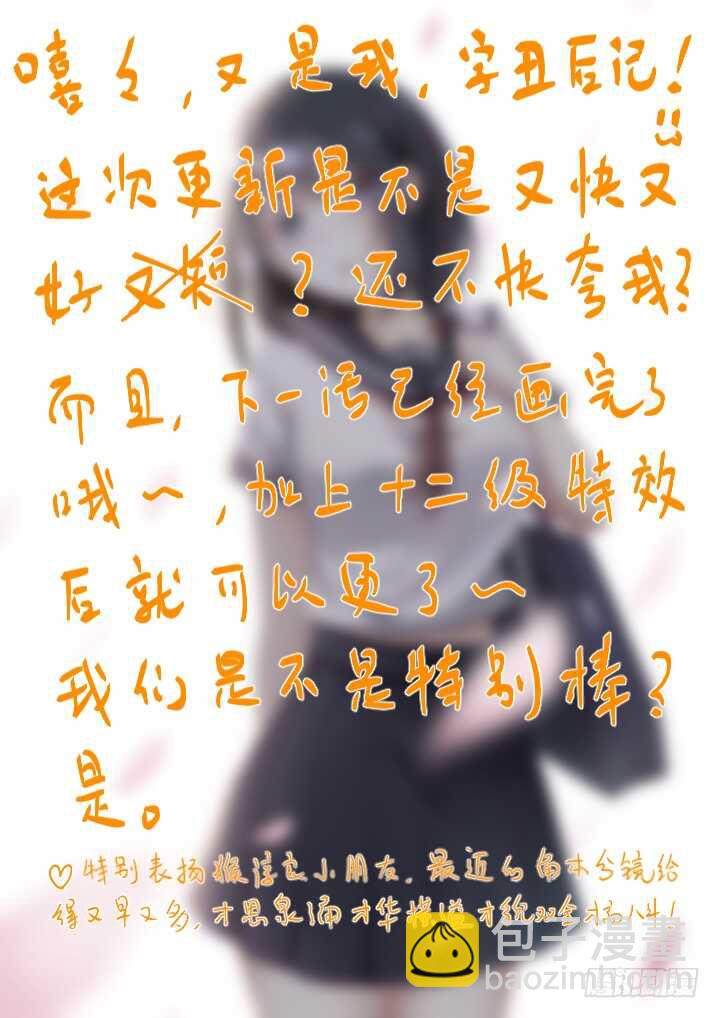 嘻々,又是我,字丑后记!
这次更新是不是又快又
好又短?还不快夸我?
而且,下一话已经画完了
哦~,加上十二级特效
后就可以更了~
我们是不是特别棒?
是。
♡特别表扬猴淳它小朋友,最近的角本分镜给
得又早又多,才思泉涌才华横溢才貌双全才高八斗!
包子漫畫
baozimh.com